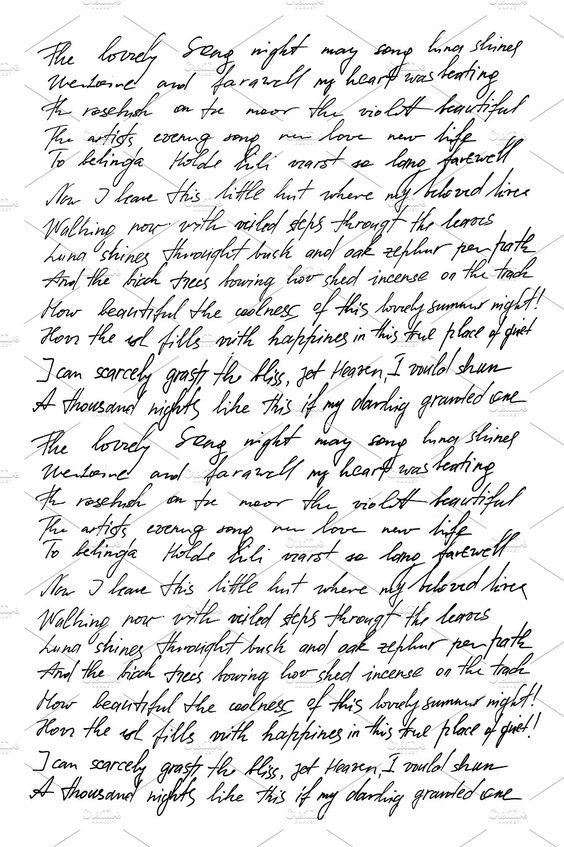 The lovely Song night may song luna shines
Welcome and farawell my heart was beating
The rosebush on the moor the violett beautiful
The artists evening song new love new life
To belinda Holde Lili warst so lang farewell
Now I leave this little hut where my beloved lives
Walking now with veiled steps througt the leaves
Luna shines throught bush and oak zephur per path
And the birch trees bowing low shed incense on the track
How beautiful the coolness of this lovely summer night!
How the sol fills with happines in this true place of quiet
I can scarcely grasp the bliss, jet Heaven, I vould shun
A thousand nights like this if my darling granted one
The lovely Song night may song luna shines
Welcome and farawell my heart was beating
The rosebush on the moor the violett beautiful
The artists evening song new love new life
To belinda Holde Lili warst so lang farewell
Now I leave this little hut where my beloved lives
Walking now with veiled steps througt the leaves
Luna shines throught bush and oak zephur per path
And the birch trees bowing low shed incense on the track
How beautiful the coolness of this lovely summer night!
How the sol fills with happines in this true place of quiet!
I can scarcely grasp the bliss, jet Heaven, I vould shun
A thousand nights like this if my darling granted one